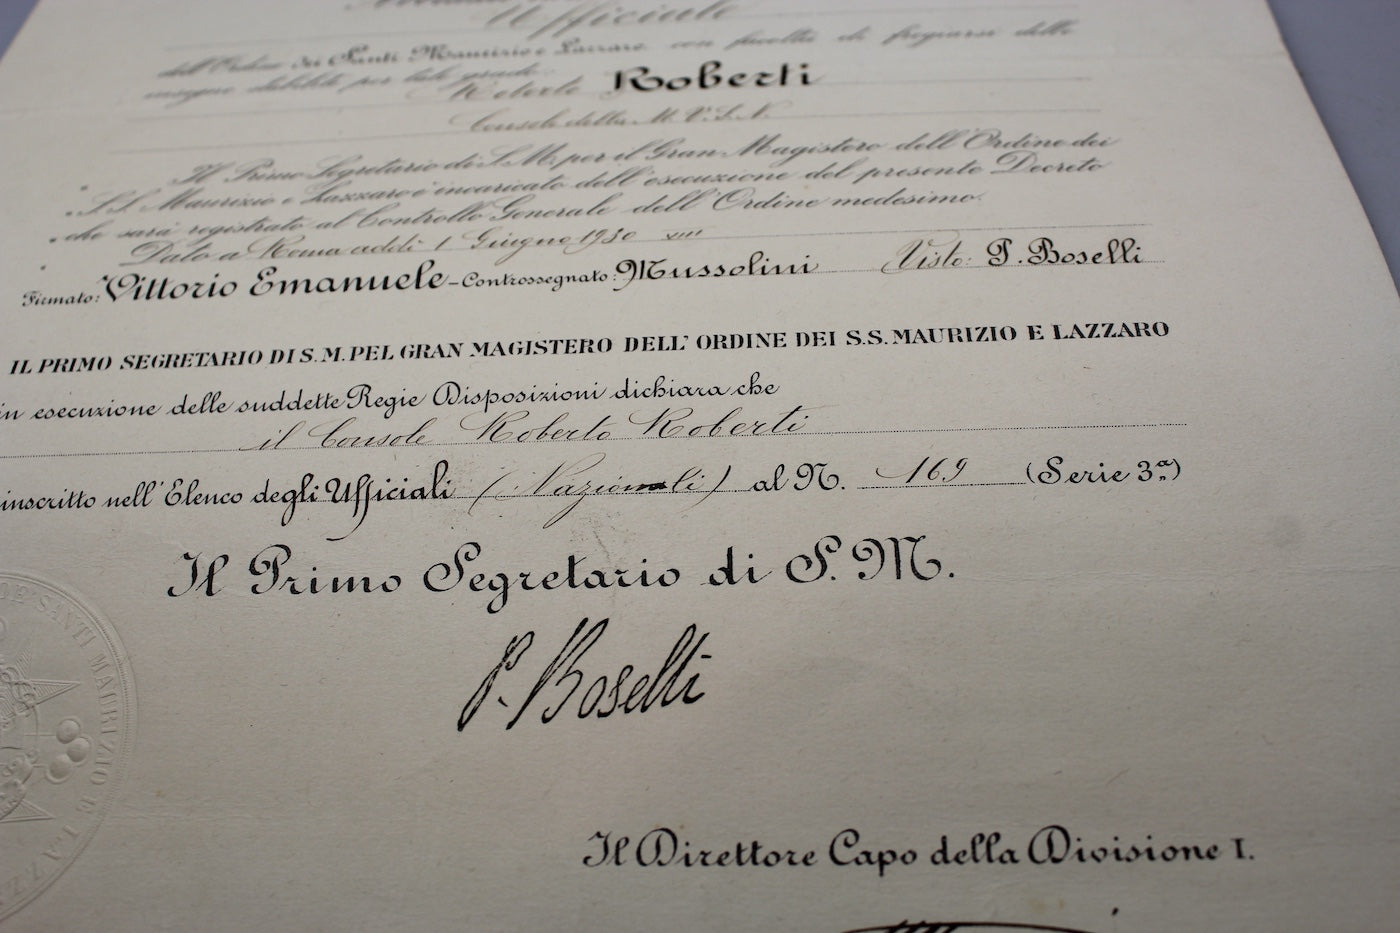 Ufficiale
dell'Ordine dei Santi Maurizio e Lazzaro con facoltà di fregiarsi delle
insegne stabilite per tale grado
Roberto Roberti
Console della M.V.S.N.
Il Primo Segretario di S.M. per il Gran Magistero dell'Ordine dei
S.S. Maurizio e Lazzaro è incaricato dell'esecuzione del presente Decreto
che sarà registrato al Controllo Generale dell'Ordine medesimo.
Dato a Roma addì 1 Giugno 1930 VIII
Firmato: Vittorio Emanuele - Controssegnato: Mussolini Visto: P. Boselli
IL PRIMO SEGRETARIO DI S.M. PEL GRAN MAGISTERO DELL'ORDINE DEI S.S. MAURIZIO E LAZZARO
in esecuzione delle suddette Regie Disposizioni dichiara che
il Console Roberto Roberti
inscritto nell'Elenco degli Ufficiali (Nazionali) al N. 169 (Serie 3ª)
Il Primo Segretario di S.M.
P. Boselli
DE' SANTI MAURIZIO E LAZZ
Il Direttore Capo della Divisione I.